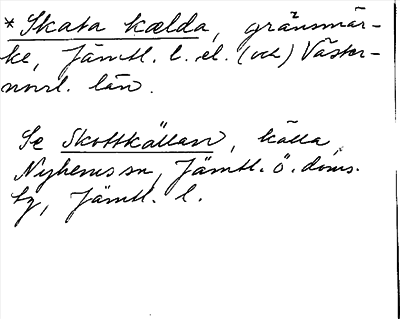 * Skata kælda, gränsmär-
ke, Jämtl. l. el. (och) Väster-
norrl. län.
Se Skottkällan, källa,
Nyhems sn, Jämtl. ö. doms.
tg, Jämtl. l.